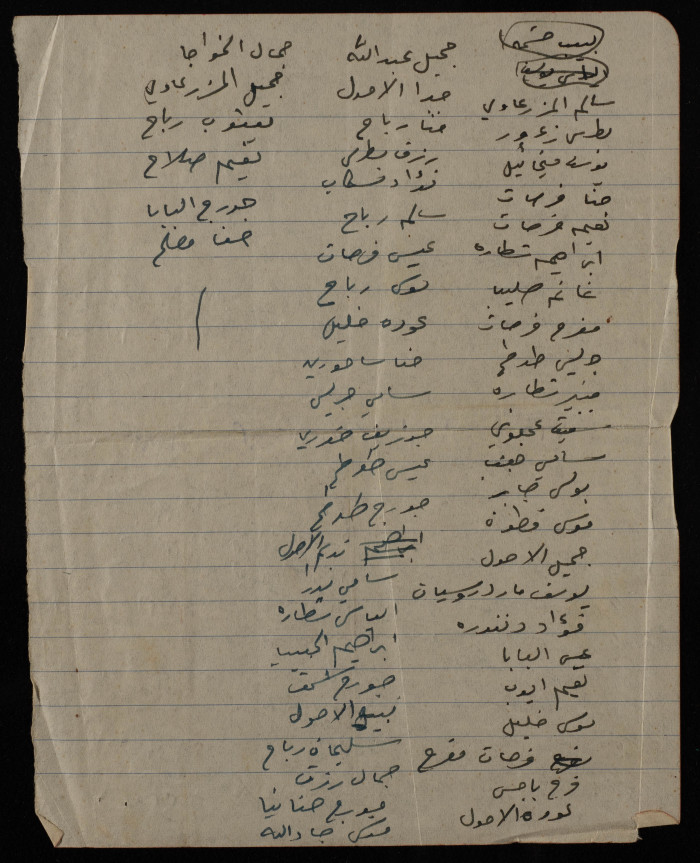 لبيب حشمه
الياس يوسف
سالم المزرعاوي
بطرس زعرور
يوسف ميخائيل
حنا فرحات
نعيم فرحات
ابراهيم شطاره
غانم صليبا
مفرح فرحات
جريس طوطح
منير شطاره
عجلوني
سامي
بولس جابر
موسى قطوة
جميل الاصول
يوسف مارديروسيان
فؤاد دنندره
عيسى البابا
نعيم ايوب
موسى خليل
فرحات مفرح
فرح باجس
عوده الاصول
جميل عبدالله
خدا الاصول
حنا رباح
رزق بطرس
فؤاد نسطاس
سالم رباح
عيسى فرحات
موسى رباح
عوده خليل
حنا ساحوري
سامي جريس
جوزيف خوري
عيسى طوطح
جورج طوطح
ابراهيم نديم الاصول
سامي بدرا
الياس شطاره
ابراهيم الحبيب
جورج
نبيل الاصول
سليمان رباح
جمال رزق
جورج حنانيا
موسى جادالله
جمال الخواجا
جميل المزرعاوي
يعقوب رباح
نعيم صلاح
جورج البابا
حنا مفلح